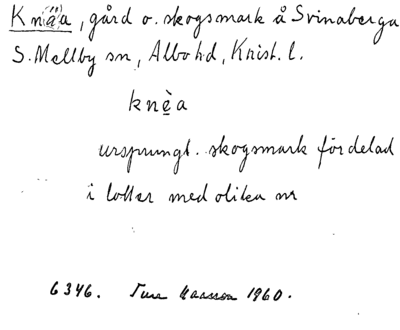 Knäa, gård o. skogsmark å Svinaberga
S. Mellby sn, Albo hd, Krist. l.
knèa
ursprungl. skogsmark fördelad
i lotter med olika nr
6346. 1960.